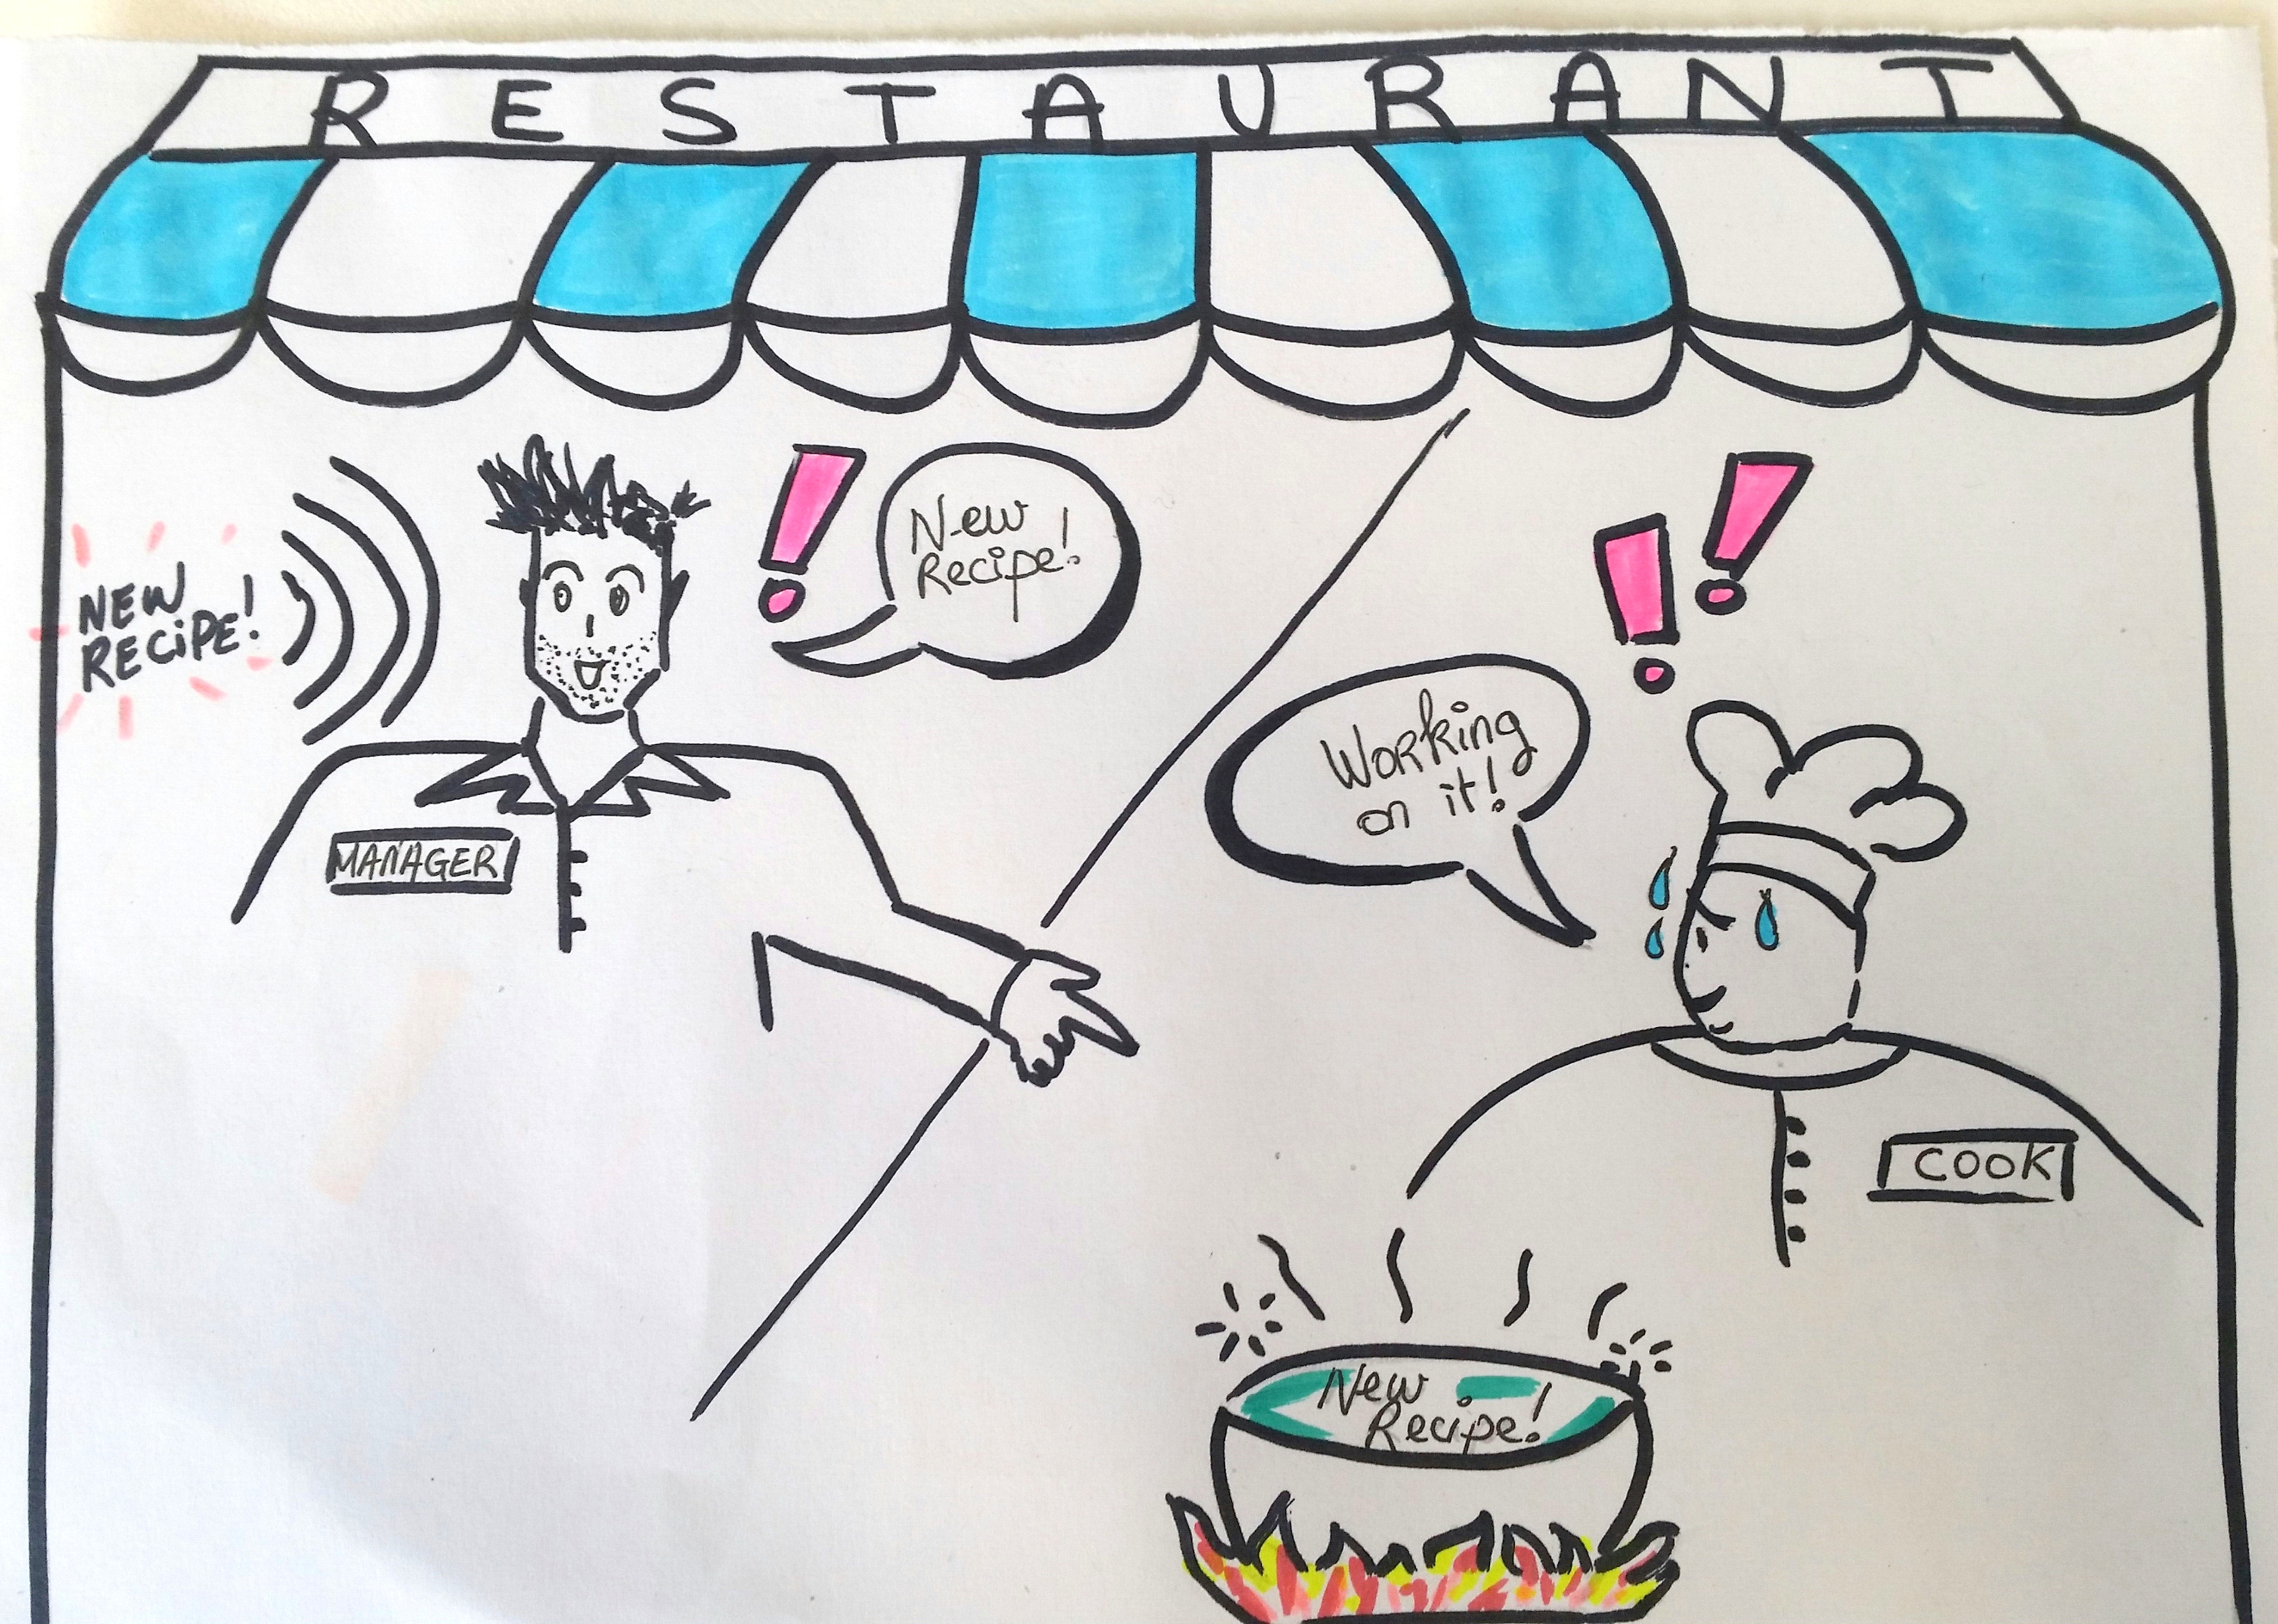 RESTAURANT
NEW
RECIPE!
New
Recipe!
MANAGER
Working
on it!
COOK
New
Recipe!